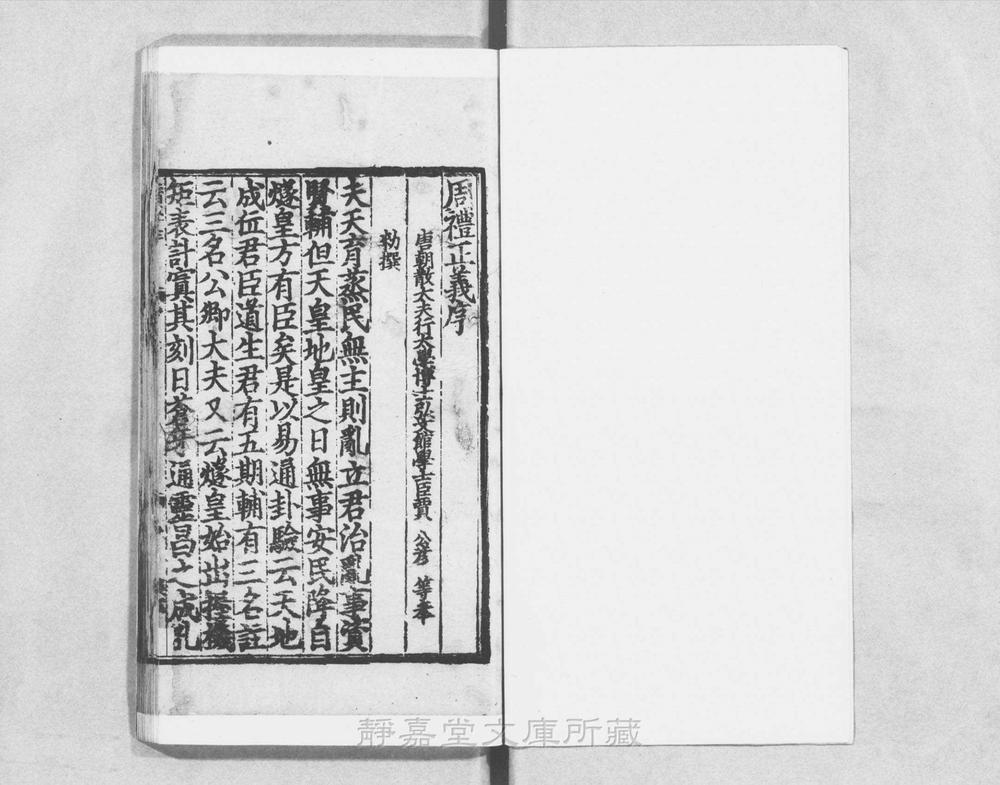 周禮正義序
唐朝散大夫行太學博士弘文館學士臣賈 公彥 等奉
勑撰
夫天育蒸民無主則亂立君治亂事資
賢輔但天皇地皇之日無事安民降自
燧皇方有臣矣是以易通卦驗云天地
成位君臣道生君有五期輔有三名註
云三名公卿大夫又云燧皇始出握機
矩表計寘其刻日蒼牙通靈昌之成孔
靜嘉堂文庫所藏